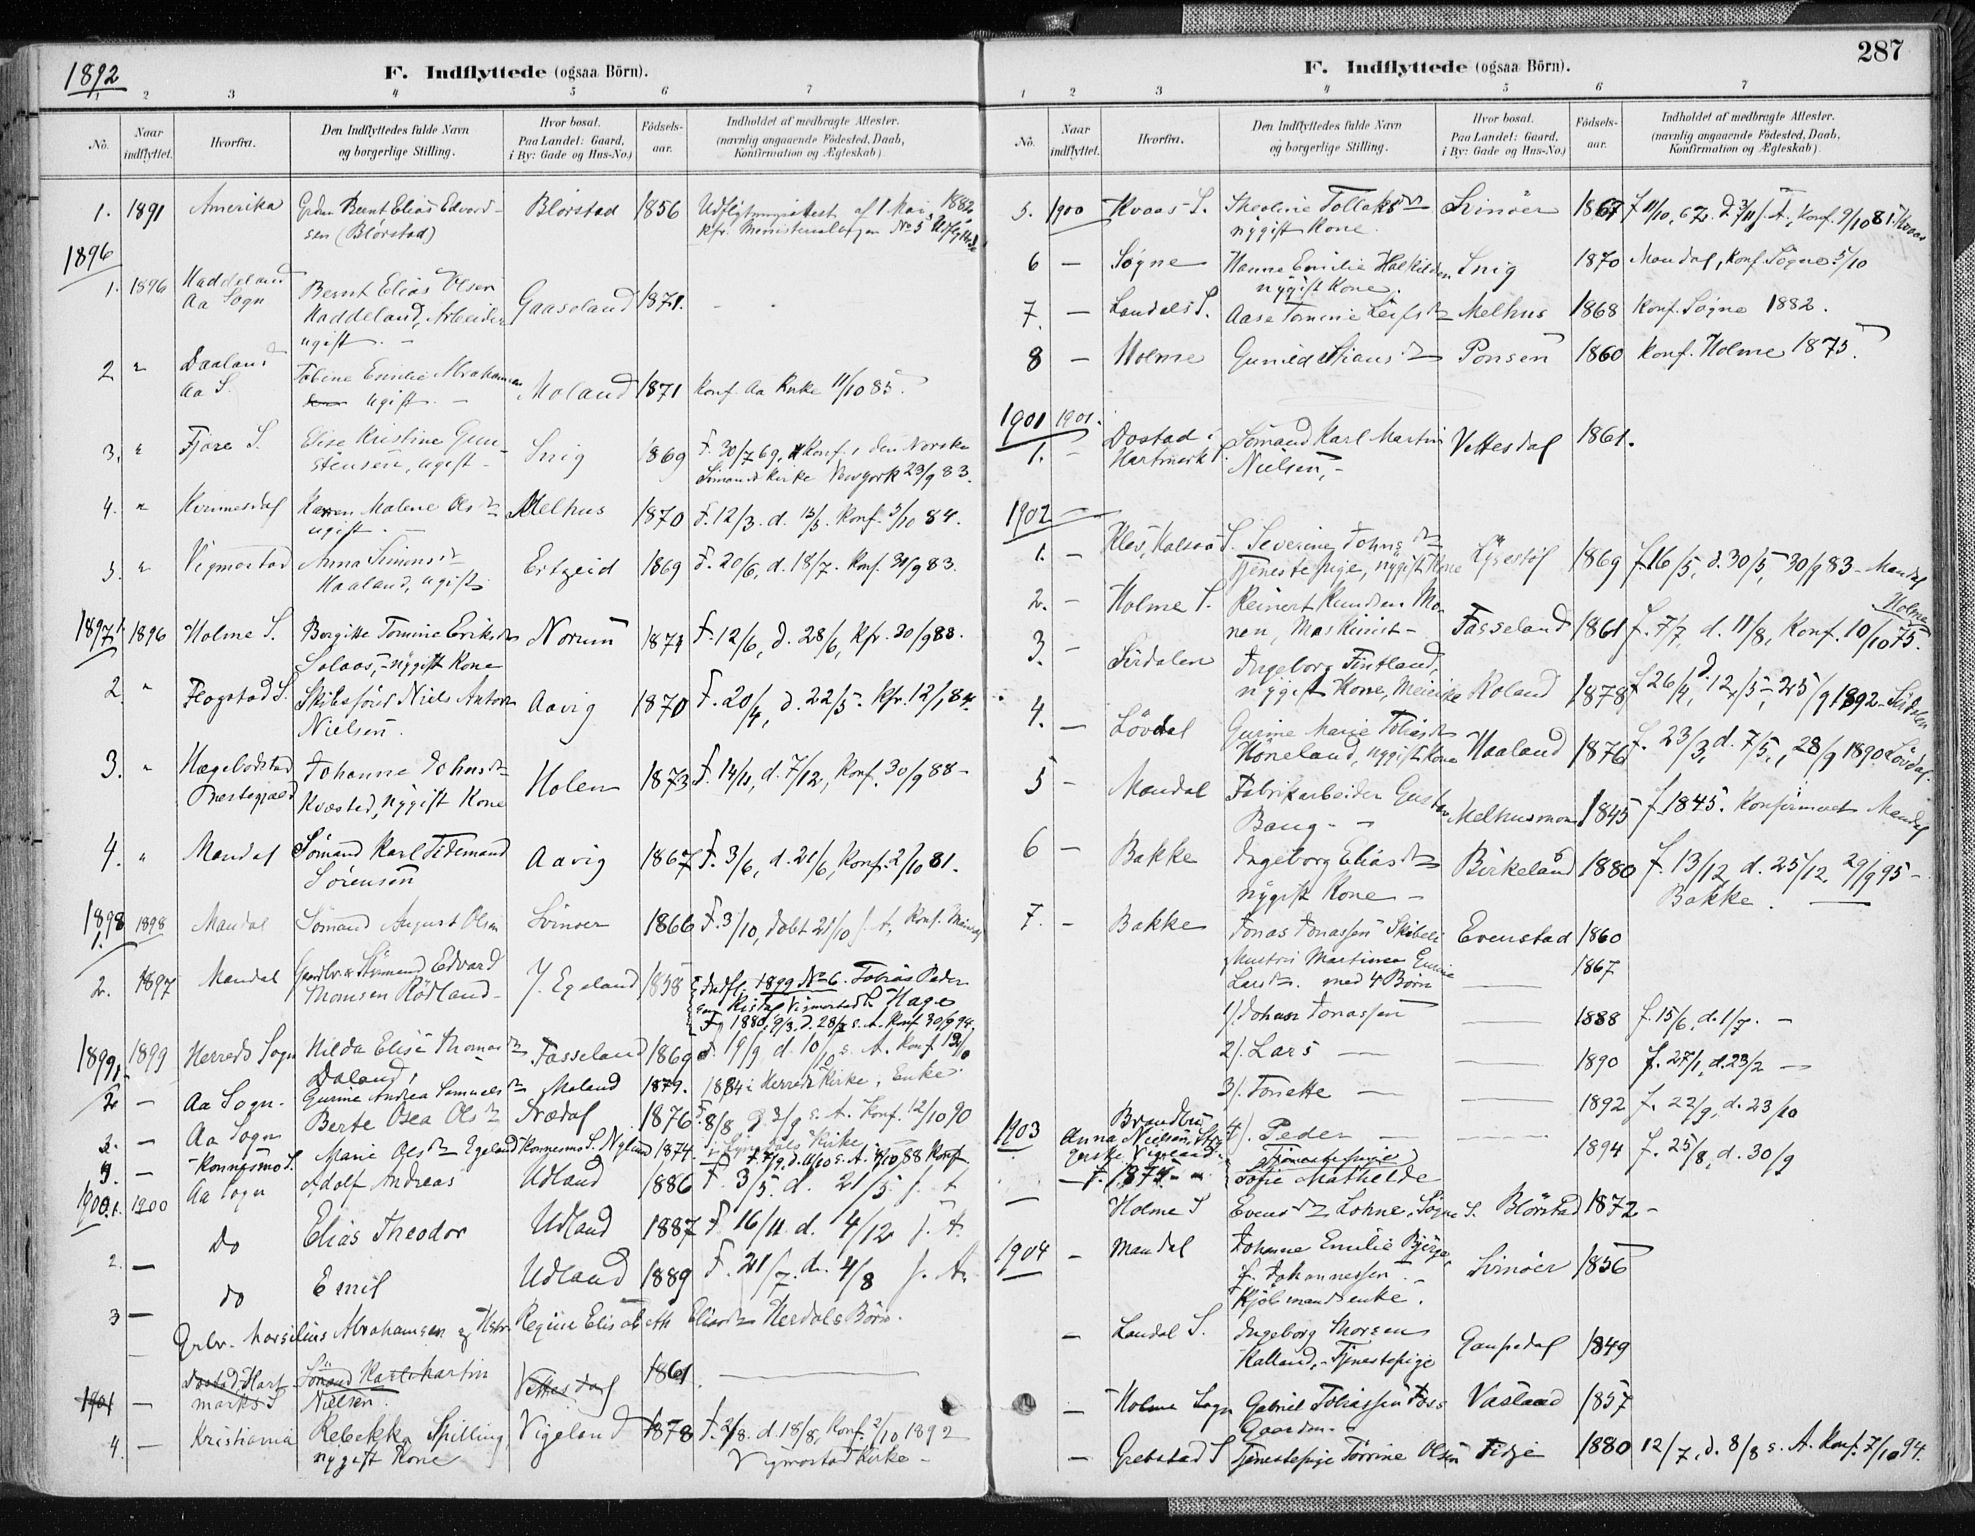 1892
F. Indflyttede (ogsaa Börn).
1 2 3 4 5 6 7
No.
Naar indflyttet.
Hvorfra.
Den Indflyttedes fulde Navn og borgerlige Stilling.
Hvor bosat. Paa Landet: Gaard, i By: Gade og Hus-No.)
Födsels-aar.
Indholdet af medbragte Attester. (navnlig angaaende Födested, Daab, Konfirmation og Ægteskab)
1. 1891 Amerika Bernt Elias Edvard- Blörstad 1856 af 1 Mai 1882
sen (Blörstad) Ministerialbogen No 5
1896
1. 1896 Haddeland Bernt Elias Olsen Gaaseland 1871.
Aa Sogn Haddeland, Arbeider
ugift. -
2 " Daaland Tobine Emilie Abraham Moland 1871 Konf. Aa Kirke 11/10 85.
Aa S. ugift. -
3. " Fjære S. Elise Kristine Gun- Snig 1869 F. 30/7 69, Konf. i den Norske
stensen, ugift - Sömands Kirke Newyork 23/9 83.
4. " Kvinnesdal Karen Malene Olsdr Melhus 1870 F. 12/3. d. 13/5. Konf. 5/10 84.
ugift. -
5. " Vigmostad Anna Simonsdr Ertzeid 1869 F. 20/6, d. 18/7. Konf. 30/9 83.
Haaland, ugift
1897 1. 1896 Holme S. Bergitte Tomine Eriksdr Norum 1874 F. 12/6, d. 28/6, Kfr. 30/9 88.
Solaas, - nygift Kone
2. " Flogstad S. Skibsförer Niels Anton Aavig 1870 F. 20/4, d. 22/5. Kfr. 12/1 84.
Nielsen.
3. " Hægebostad Johanne Johnsdr Holen 1873 F. 14/11, d. 7/12, Konf. 30/9 88 -
Præstegjæld Kvæsted, Nygift Kone
4. " Mandal Sömand Karl Tidemand Aavig 1867 F. 3/6, d. 21/6, Konf. 2/10 81.
Sörensen
1898 1. 1898 Mandal Sömand August Olsen Svinöer 1866 F. 3/10, Döbt 21/10 s. A. Konf. Mandal
2. 1897 Mandal Edvard Y. Egeland 1858 Indfl. 1899 No 6. Tobias Peder
Thomsen Rödland - Vigmostad S. Hage
F. 1880, 9/3. d. 28/3 s. A. Konf. 30/9 94.
1899 1. 1899 Herreds Sogn Hilda Elise Thomasdr Tasseland 1869 F. 19/9 d. 10/10 s. A. Konf. 12/10
Daland,
2. - Aa Sogn. Gurine Andrea Samuelsdr Moland 1879. 1884 i Herreds Kirke, Enke.
Aa Sogn Berte Osea Olsdr Trædal 1876 F. 8/8 d. 3/9 s. A. Konf. 12/10 90
3. - Konnesmo S. Marie Olsdr Egeland Konnesmo S. Nyland 1874 Konf.
1900 1. 1900 Aa Sogn Adolf Andreas Udland 1886 F. 3/5. d. 21/5 s. A
2. - Do Elias Theodor Udland 1887 F. 16/11 d. 4/12 s. A.
3 - do Emil Udland 1889 F. 21/7. d. 4/8 s. A.
- Grbr. Marsilius Abrahamsen og Hstr. Regine Elisabeth Eliasdr Herdals Börn.
1901 - Dostad Hart- Sömand Karl Martin Vettesdal 1861
marks S Nielsen.
4. - Kristiania Rebekka Spilling, Vigeland 1878 F. 2/8. d. 18/8, Konf. 2/10 1892
nygift Kone Vigmostad Kirke -
287
F. Indflyttede (ogsaa Börn).
1 2 3 4 5 6 7
No.
Naar indflyttet.
Hvorfra.
Den Indflyttedes fulde Navn og borgerlige Stilling.
Hvor bosat. Paa Landet: Gaard, i By: Gade og Hus-No.)
Födsels-aar.
Indholdet af medbragte Attester. (navnlig angaaende Födested, Daab, Konfirmation og Ægteskab)
5. 1900 Kvaas S. Theoline Tollaksdr Svinöer 1867 f. 11/10, 67. d. 3/11 s. A, Konf. 9/10 81. Kvaas
nygift Kone.
6 - Søgne Hanne Emilie Snig 1870 Mandal, Konf. Søgne 5/10
nygift Kone.
7. - Laudals S. Aase Tomine Leifsdr Melhus 1868 Konf. Søgne 1882.
8 - Holme Gunild Stiansdr Ponsen 1860 Konf. Holme 1875.
1901 1901.
1. - Dostad i Sömand Karl Martin Vettesdal 1861.
Hartmark S. Nielsen, -
1902
1. - Klev, Halsaa S. Severine Johnsdr 1869 f. 16/5, d. 30/5, 30/9 83 - Mandal
Tjenestepige, nygift Kone
2. - Holme S. Reinert Knudsen Mo- Tasseland 1861 f. 7/7, d. 11/8, Konf. 10/10 75. Holme
nen, Maskinist -
3. - Sirdalen Ingeborg Fintland, Roland 1878 f. 26/4, d. 12/5, - 25/9 1892 - Sirdalen
nygift Kone,
4. - Løvdal Gurine Marie Tobiasdr Haaland 1876 f. 23/3, d. 7/5, 28/9 1890 Løvdal.
Höneland, nygift Kone
5 - Mandal Fabrikarbeider Gustav Melhusmoen 1845 f. 1845. Konfirmeret Mandal
Baug - -
6 - Bakke Ingeborg Eliasdr Birkeland 1880 f. 13/12 d. 25/12, 29/9 95 -
nygift Kone - Bakke.
7. - Bakke Jonas Jonassen Skibeli Evenstad 1860
Hustru Martinea Emilie 1867
Larsdr. med 4 Börn
1/. Johan Jonassen 1888 f. 15/6, d. 1/7. -
2/. Lars 1890 f. 27/1, d. 23/2 -
3/. Tonette 1892 f. 22/9, d. 23/10
4/. Peder 1894 f. 25/8, d. 30/9
1903 Anna Nielsen
F. 1874. -
- Holme S Tjenestepige Sofie Mathilde
Evensdr Lohne, Søgne S. Blörstad 1872 -
1904 - Mandal Johanne Emilie Bjerge, Svinöer 1856
f. Johannessen. -
Kjöbmandsenke.
- Laudal S. Ingeborg Thorsen Gaupedal 1849
Kalland, - Tjenestepige
- Holme Sogn Gabriel Tobiassen Foss Vasland 1857
Gaardm. -
- Grebstad S Tjenestepige Törrine Olsen Tidje 1880 12/7, d. 8/8 s. A. Konf. 7/10 94.